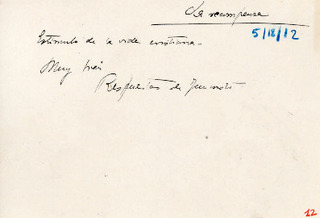 La recompensa
5/18/12
Estímulo de la vida cristiana.
Muy bien
Respuestas de
12